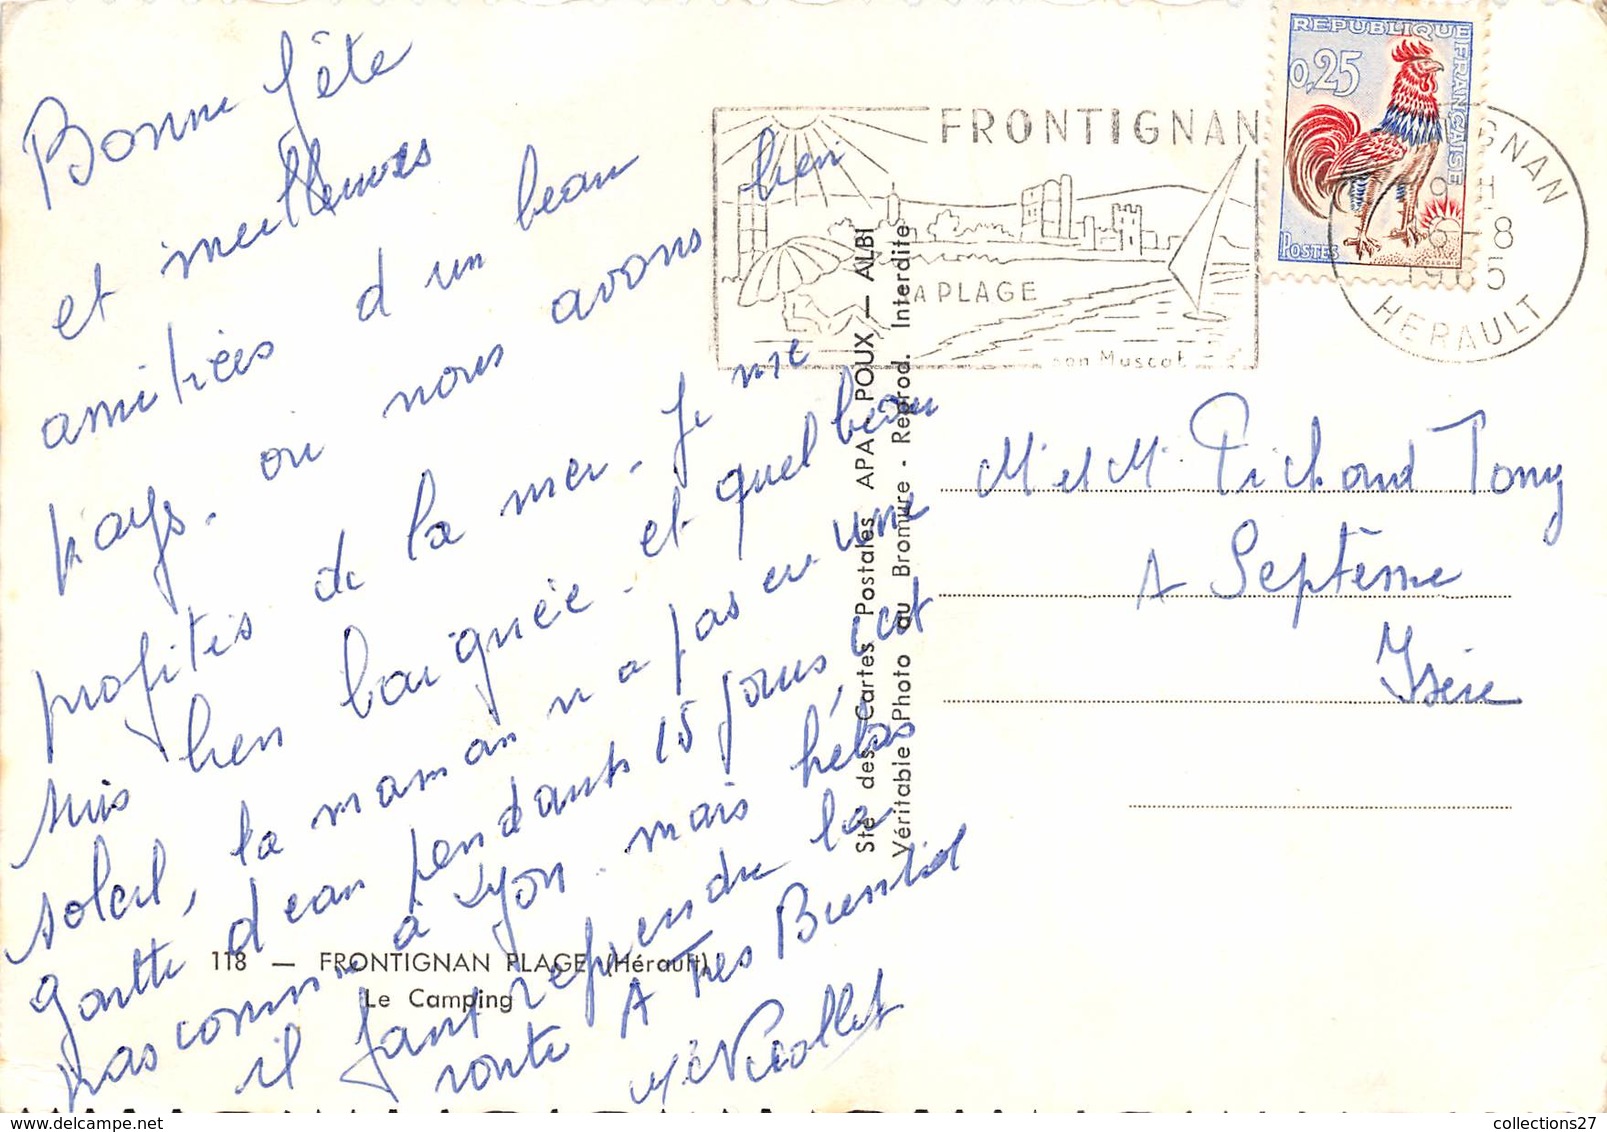 Bonne fête
et meilleures
amitiées d'un beau
pays. où nous avons bien
profités de la mer. Je me
suis bien baignée. et quel beau
soleil, la maman n'a pas eu une
goutte d'eau pendants 15 jours, c'est
pas comme à Lyon. mais hélas
il faut reprendre la
route A Tres Bientot
Nicollet
118 — FRONTIGNAN PLAGE (Hérault)
Le Camping
Sté des Cartes Postales APA-POUX — ALBI
Véritable Photo au Bromure - Reprod. Interdite
FRONTIGNAN
LA PLAGE
son Muscat
REPUBLIQUE FRANÇAISE
0,25
POSTES
DECARIS
GNAN
9 H
6-8
1965
HERAULT
Mr et Me Pichand Tony
A Septème
Isère
collections27